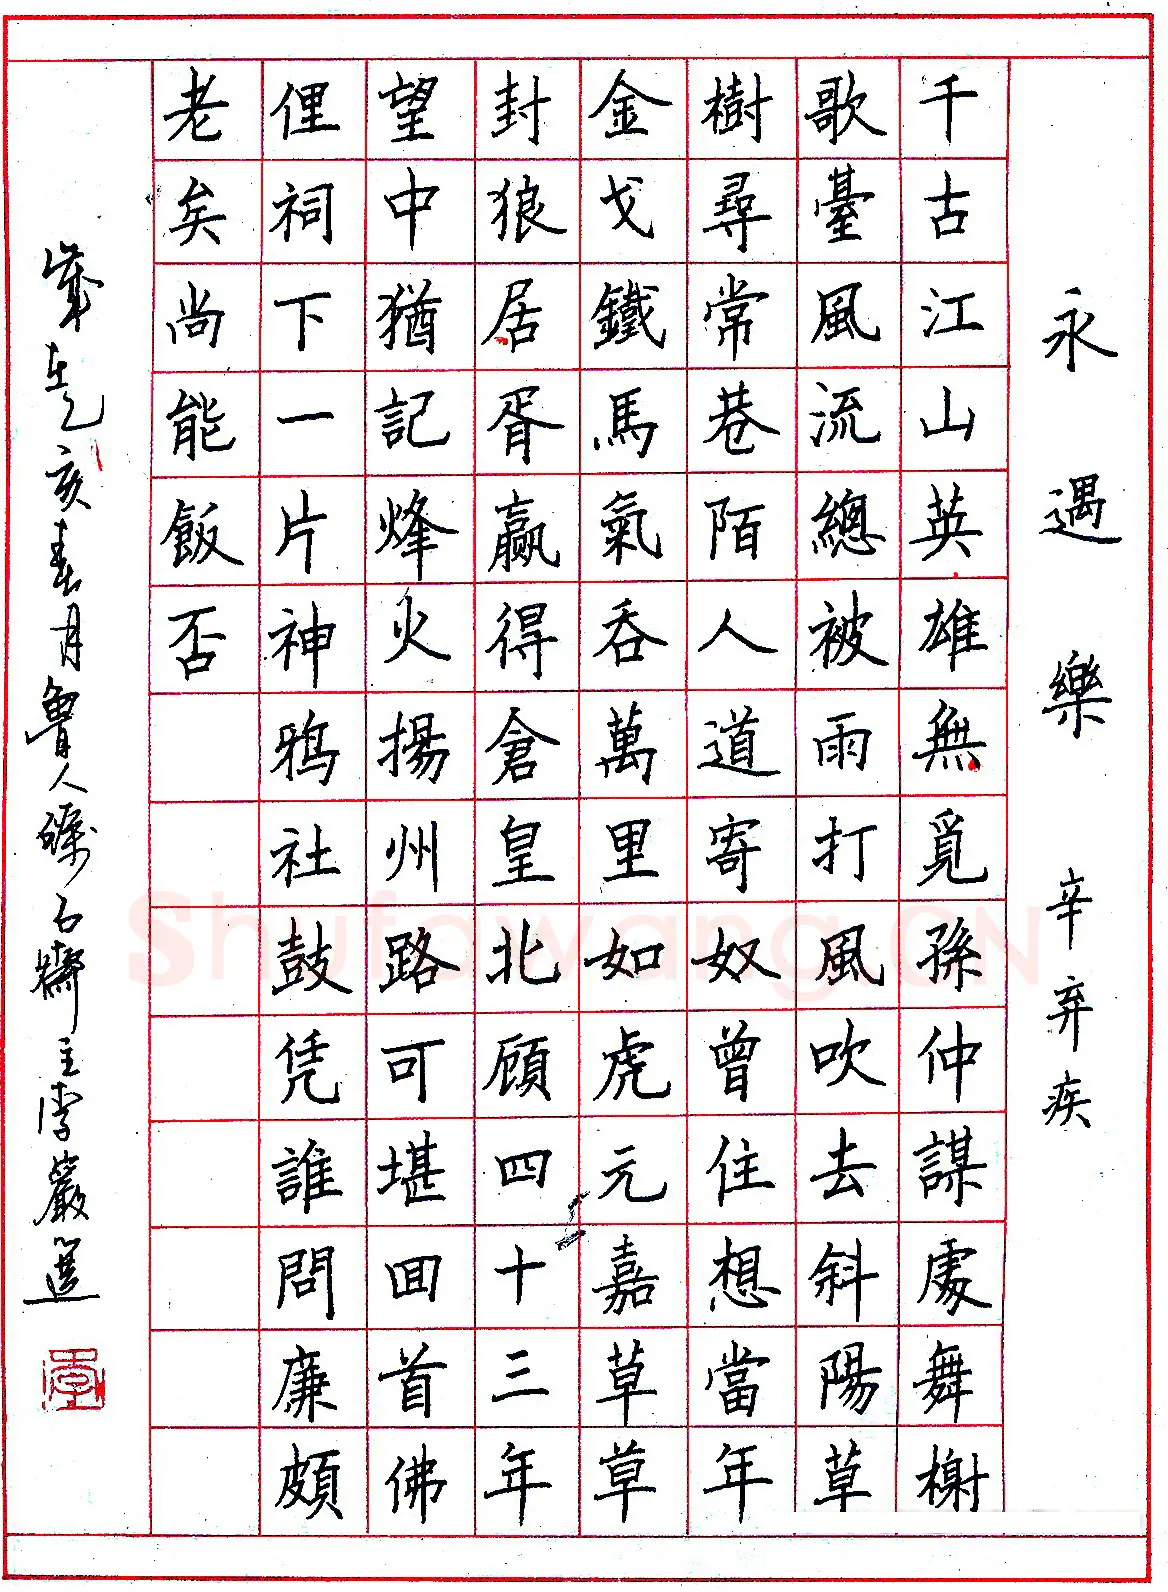 永遇樂 辛弃疾
千古江山英雄無覓孫仲謀處舞榭
歌臺風流總被雨打風吹去斜陽草
樹尋常巷陌人道寄奴曾住想當年
金戈鐵馬氣吞萬里如虎元嘉草草
封狼居胥赢得倉皇北顧四十三年
望中猶記烽火揚州路可堪囬首佛
俚祠下一片神鴉社鼓凭誰問廉頗
老矣尚能飯否
歲在乙亥春月魯人石齋主李巖
Shufawang.CN